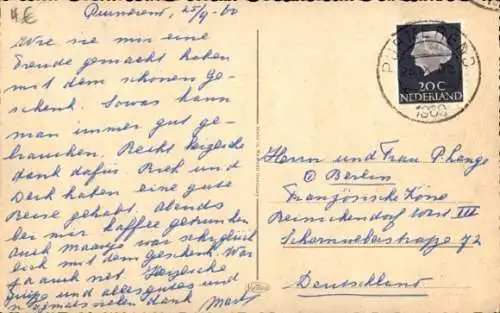 4€
Purmerend, 25/9-60
Wie sie mir eine
Freude gemacht haben
mit dem schönen Ge-
schenk. Sowas kann
man immer gut ge-
brauchen. Recht herzliche
dank dafür. Rieh und
Dirk haben eine gute
Reise gehabt. Abends
bei mir Kaffee getrunken
auch Maartje war sehr glück
lich mit dem geschenk. War
ja auch net. Herzliche
grüße und alles gutes und
nogmals vielen dank
PURMEREND
20 C
NEDERLAND
Herrn und Frau P. Lange
Berlin
Französische Zone
Reinickendorf West III
Scharnweberstraße 72
Deutschland